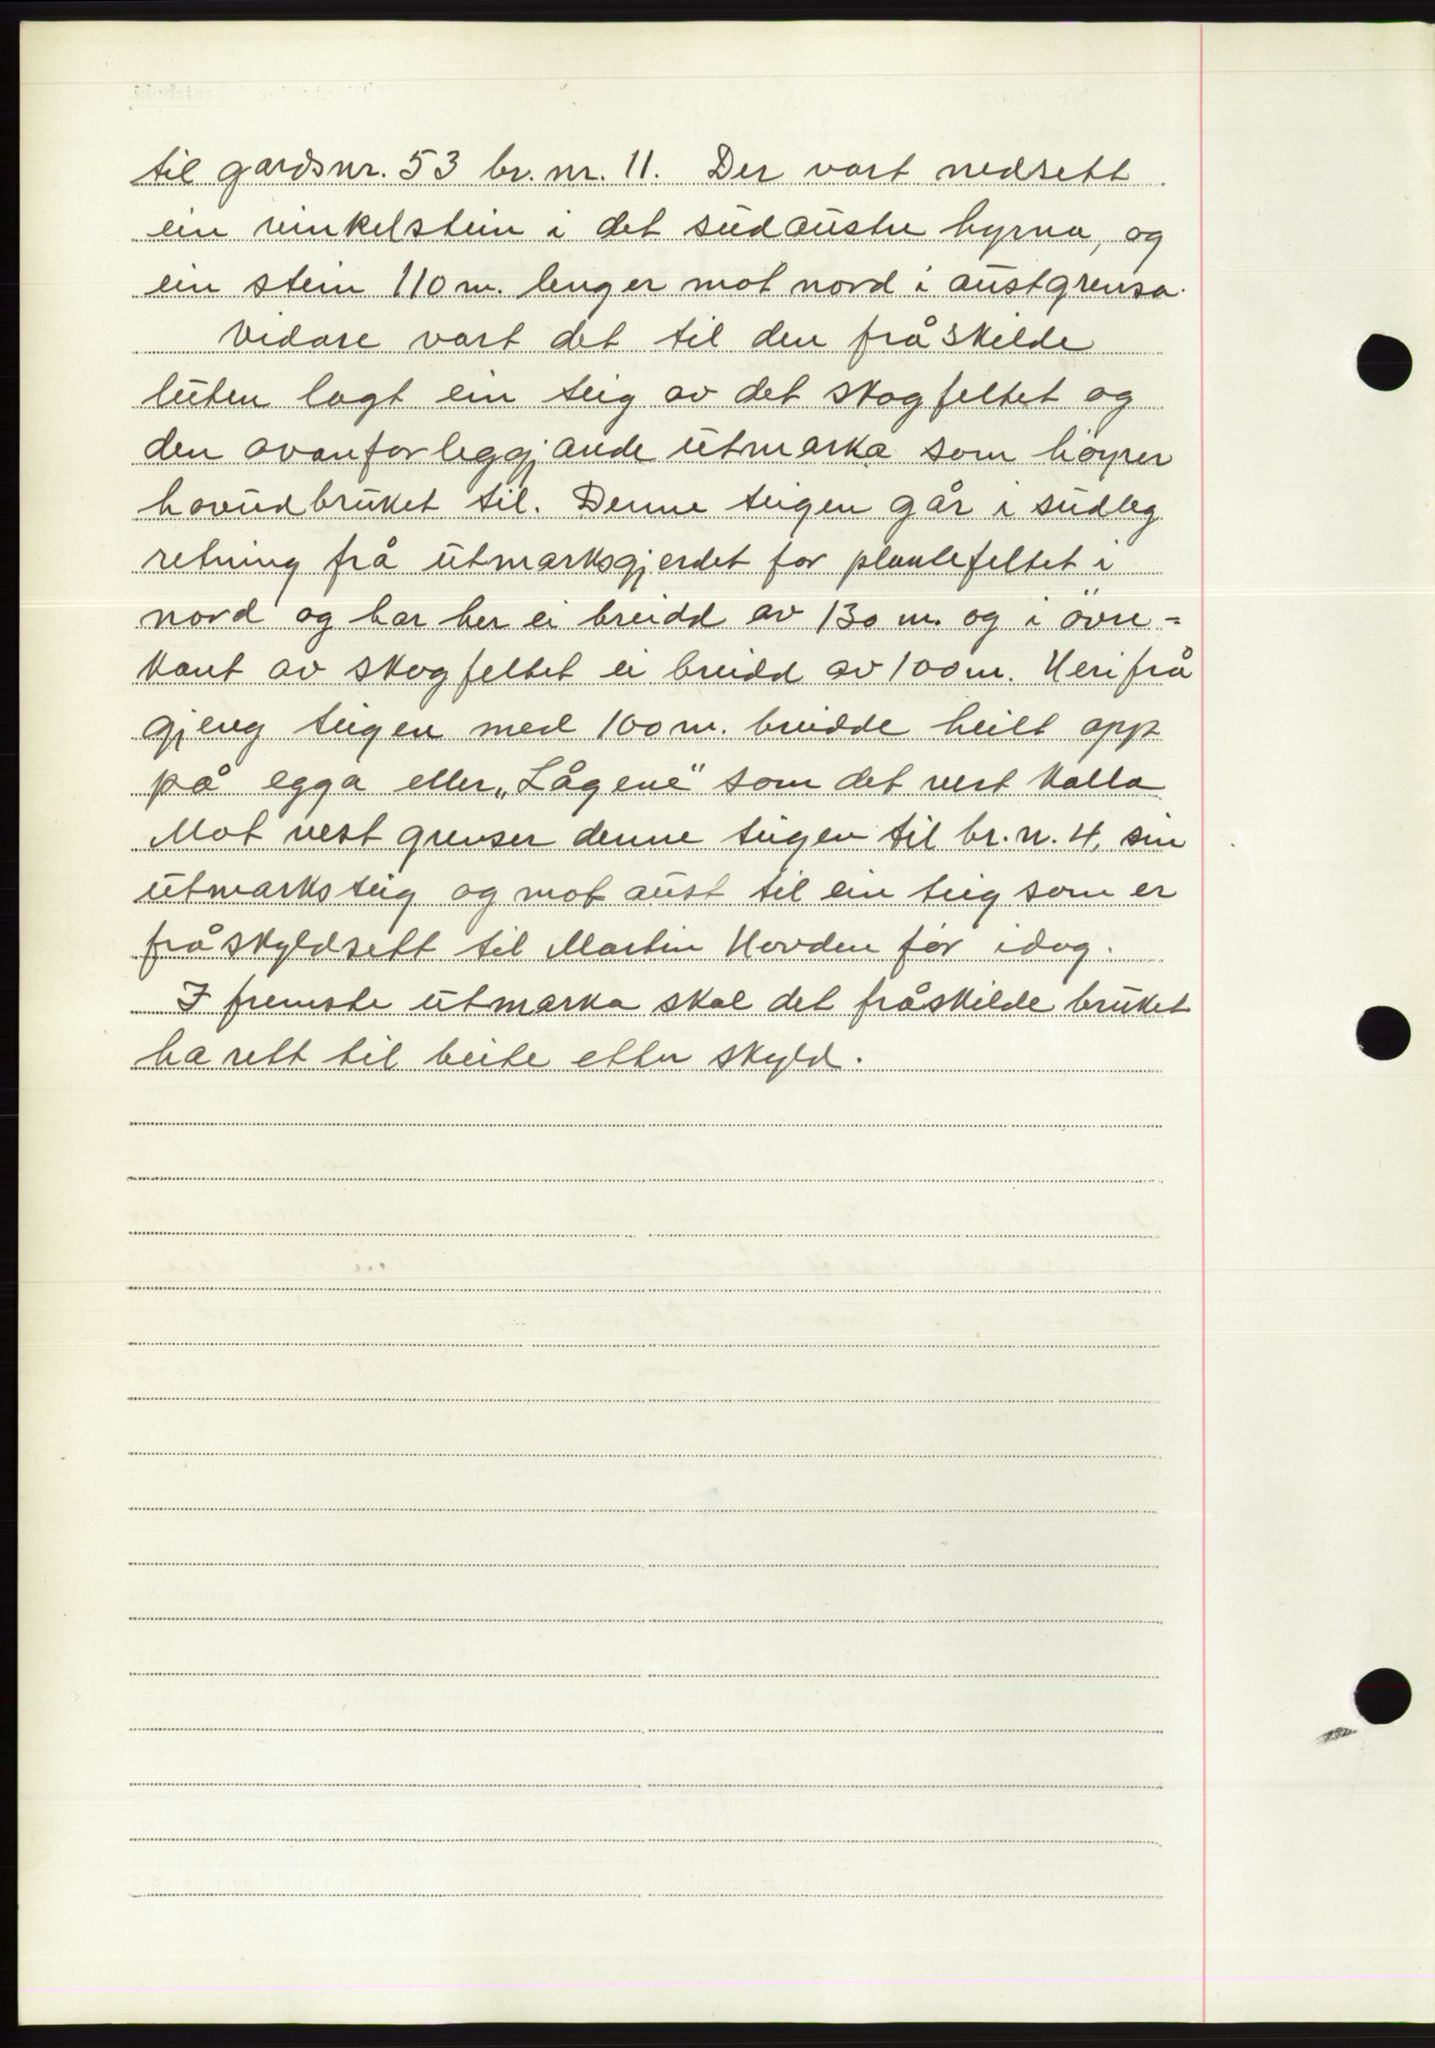 til gardsnr. 53 br. nr. 11. Der vart nedsett
ein vinkelstein i det südaüstre hyrna, og
ein stein 110 m. lenger mot nord i aüstgrensa.
Vidare vart det til den fråskilde
lüten lagt ein teig av det skogfeltet og
den ovanforleggjande ütmarka som höyrer
hovüdbrüket til. Denne teigen går i südleg
retning frå ütmarksgjerdet for plantefeltet i
nord og har her ei breidd av 130 m. og i övre-
kant av skogfeltet ei breidd av 100 m. Herifrå
gjeng teigen med 100 m. breidde heilt opp
på egga eller „Lågene" som det vert kalla
Mot vest grenser denne teigen til br. n. 4, sin
ütmarksteig og mot aüst til ein teig som er
fråskyldsett til Martin Hovden før idag.
I fremste ütmarka skal det fråskilde brüket
ha rett til beite etter skyld.